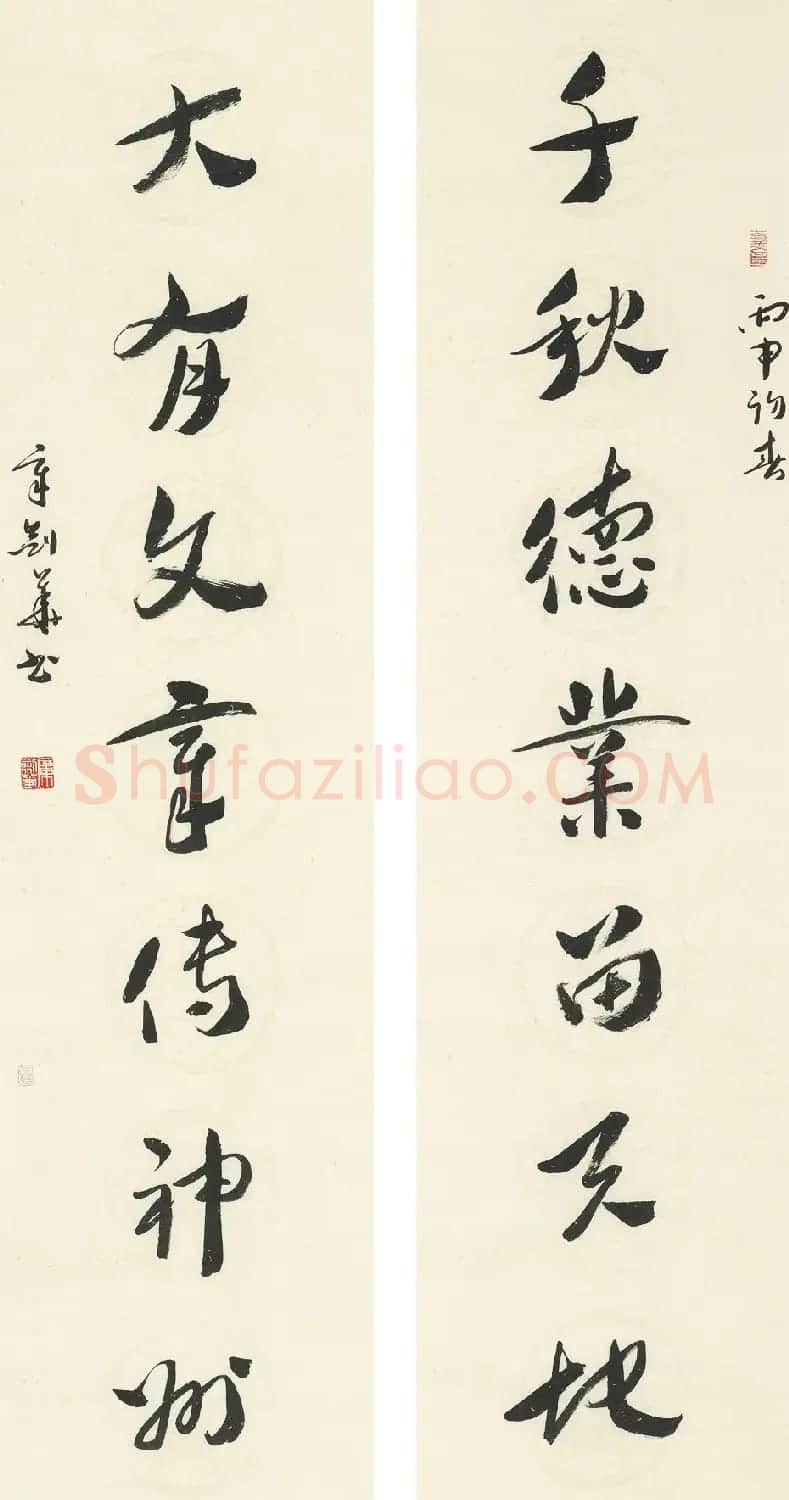 丙申初春
千秋德業留天地
大有文章傳神州
章劍華書
Shufaziliao.COM